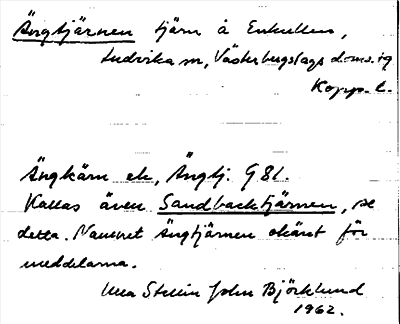 Ängtjärnen tjärn å Enkullen,
Ludvika sn, Västerbergslags doms. tg
Kopp. l.
Ängkärn ek, Ängtj. G 81.
Kallas även Sandbacktjärnen, se
detta. Namnet Ängtjärnen okänt för
meddelarna.
Stellin John Björklund
1962.